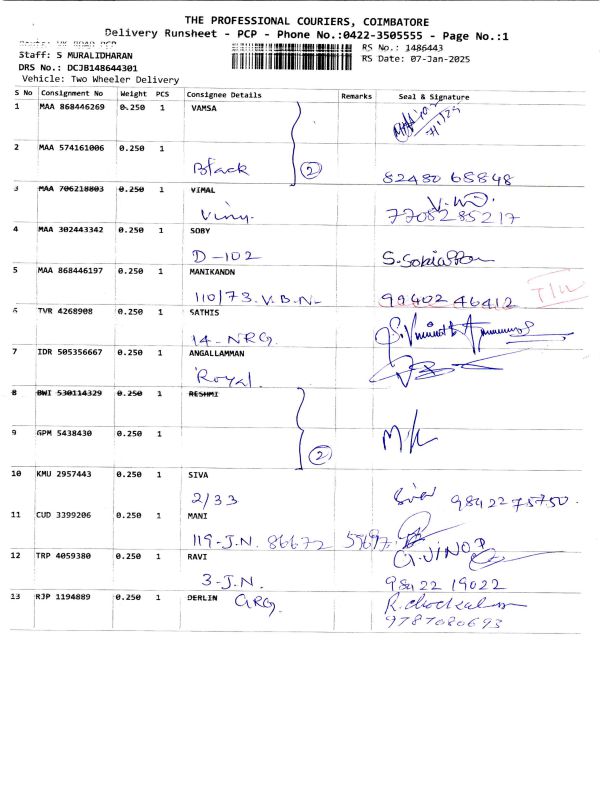 THE PROFESSIONAL COURIERS, COIMBATORE
Delivery Runsheet - PCP - Phone No.:0422-3505555 - Page No.:1
Staff: S MURALIDHARAN
RS No.: 1486443
DRS No.: DCJB148644301
RS Date: 07-Jan-2025
Vehicle: Two Wheeler Delivery
S No Consignment No Weight PCS Consignee Details Remarks Seal & Signature
1 MAA 868446269 0.250 1 VAMSA
7/1/25
2 MAA 574161006 0.250 1
Black 2 82480 68848
3 MAA 706218803 0.250 1 VIMAL
Viny. 7708285217
4 MAA 302443342 0.250 1 SOBY
D-102
5 MAA 868446197 0.250 1 MANIKANDN
110/73.V.B.N- 99402 46412
6 TVR 4268908 0.250 1 SATHIS
14-NRG.
7 IDR 505356667 0.250 1 ANGALLAMMAN
Royal.
8 BWI 530114329 0.250 1 RESHMI
9 GPM 5438430 0.250 1
2
10 KMU 2957443 0.250 1 SIVA
2/33 98422 75750.
11 CUD 3399206 0.250 1 MANI
119-J.N. 86672 55697. G.VINO
12 TRP 4059380 0.250 1 RAVI
3-J.N. 98422 19022
13 RJP 1194889 0.250 1 DERLIN GRG.
9787080693